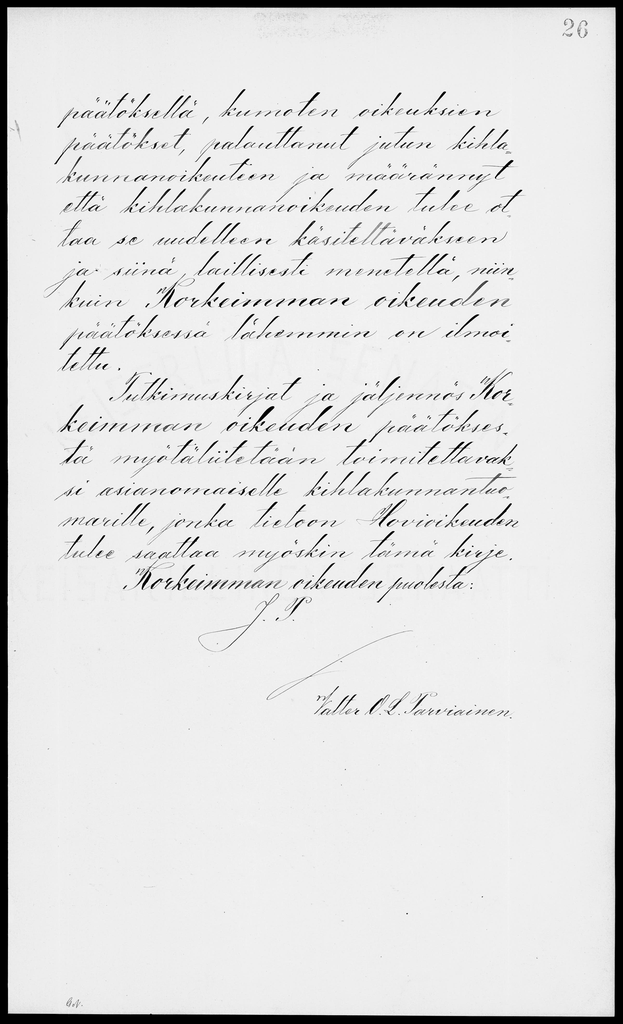 26
päätöksellä, kumoten oikeuksien
päätökset, palauttanut jutun kihla-
kunnanoikeuteen ja määrännyt
että kihlakunnanoikeuden tulee ot-
taa se uudelleen käsiteltäväkseen
ja siinä laillisesti menetellä, niin-
kuin Korkeimman oikeuden
päätöksessä lähemmin on ilmoi-
tettu.
Tutkimuskirjat ja jäljennös Kor-
keimman oikeuden päätökses-
tä myötäliitetään toimitettavak-
si asianomaiselle kihlakunnantuo-
marille, jonka tietoon Hovioikeuden
tulee saattaa myöskin tämä kirje.
Korkeimman oikeuden puolesta:
J. P.
Valter O. L. Parviainen.